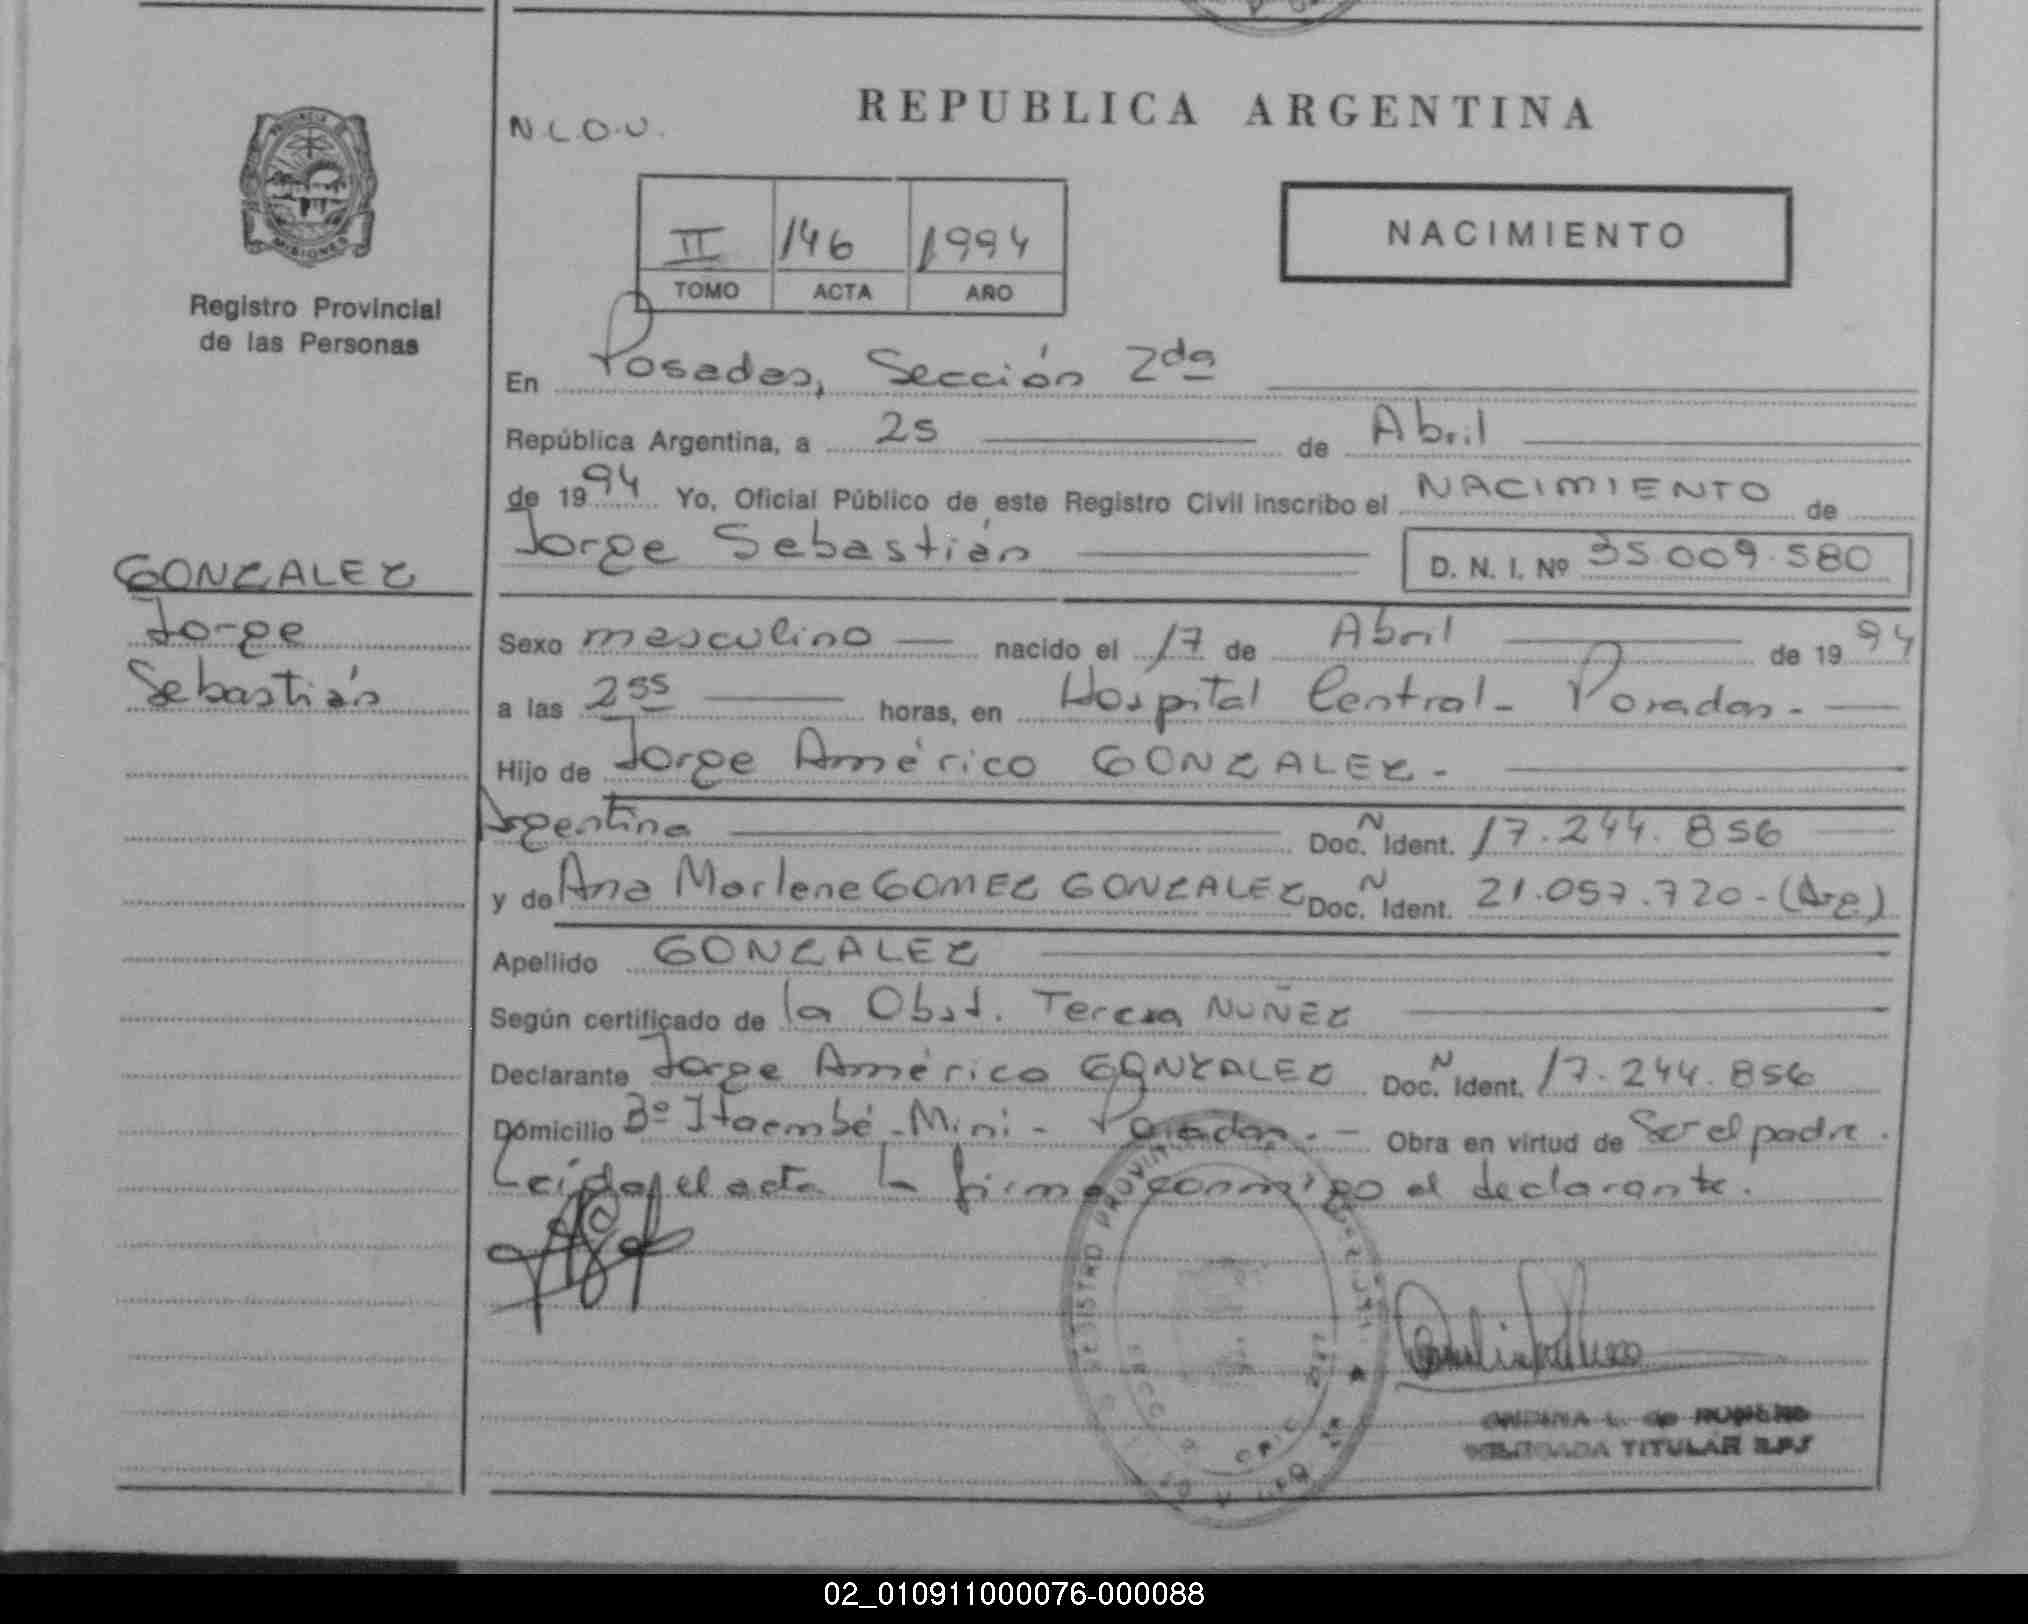 REPUBLICA ARGENTINA
N.L.O.U.
II 146 1994
TOMO ACTA AÑO
NACIMIENTO
PROVINCIA DE
MISIONES
Registro Provincial
de las Personas
En Posadas, Sección 2da
República Argentina, a 25 de Abril
de 1994 Yo, Oficial Público de este Registro Civil inscribo el NACIMIENTO de
Jorge Sebastián D. N. I. Nº 35.009.580
GONZALEZ
Jorge
Sebastián
Sexo masculino nacido el 17 de Abril de 1994
a las 2 55 horas, en Hospital Central - Posadas.-
Hijo de Jorge Américo GONZALEZ.-
Argentina Doc. N Ident. 17.244.856
y de Ana Marlene GOMEZ GONZALEZ Doc. N Ident. 21.057.720-(Arg)
Apellido GONZALEZ
Según certificado de la Obst. Teresa NUÑEZ
Declarante Jorge Américo GONZALEZ Doc. N Ident. 17.244.856
Domicilio Bº Itaembé-Mini - Posadas.- Obra en virtud de Ser el padre.
Leída el acta la firma conmigo el declarante.
REGISTRO PROVINCIAL
TITULAR
02_010911000076-000088